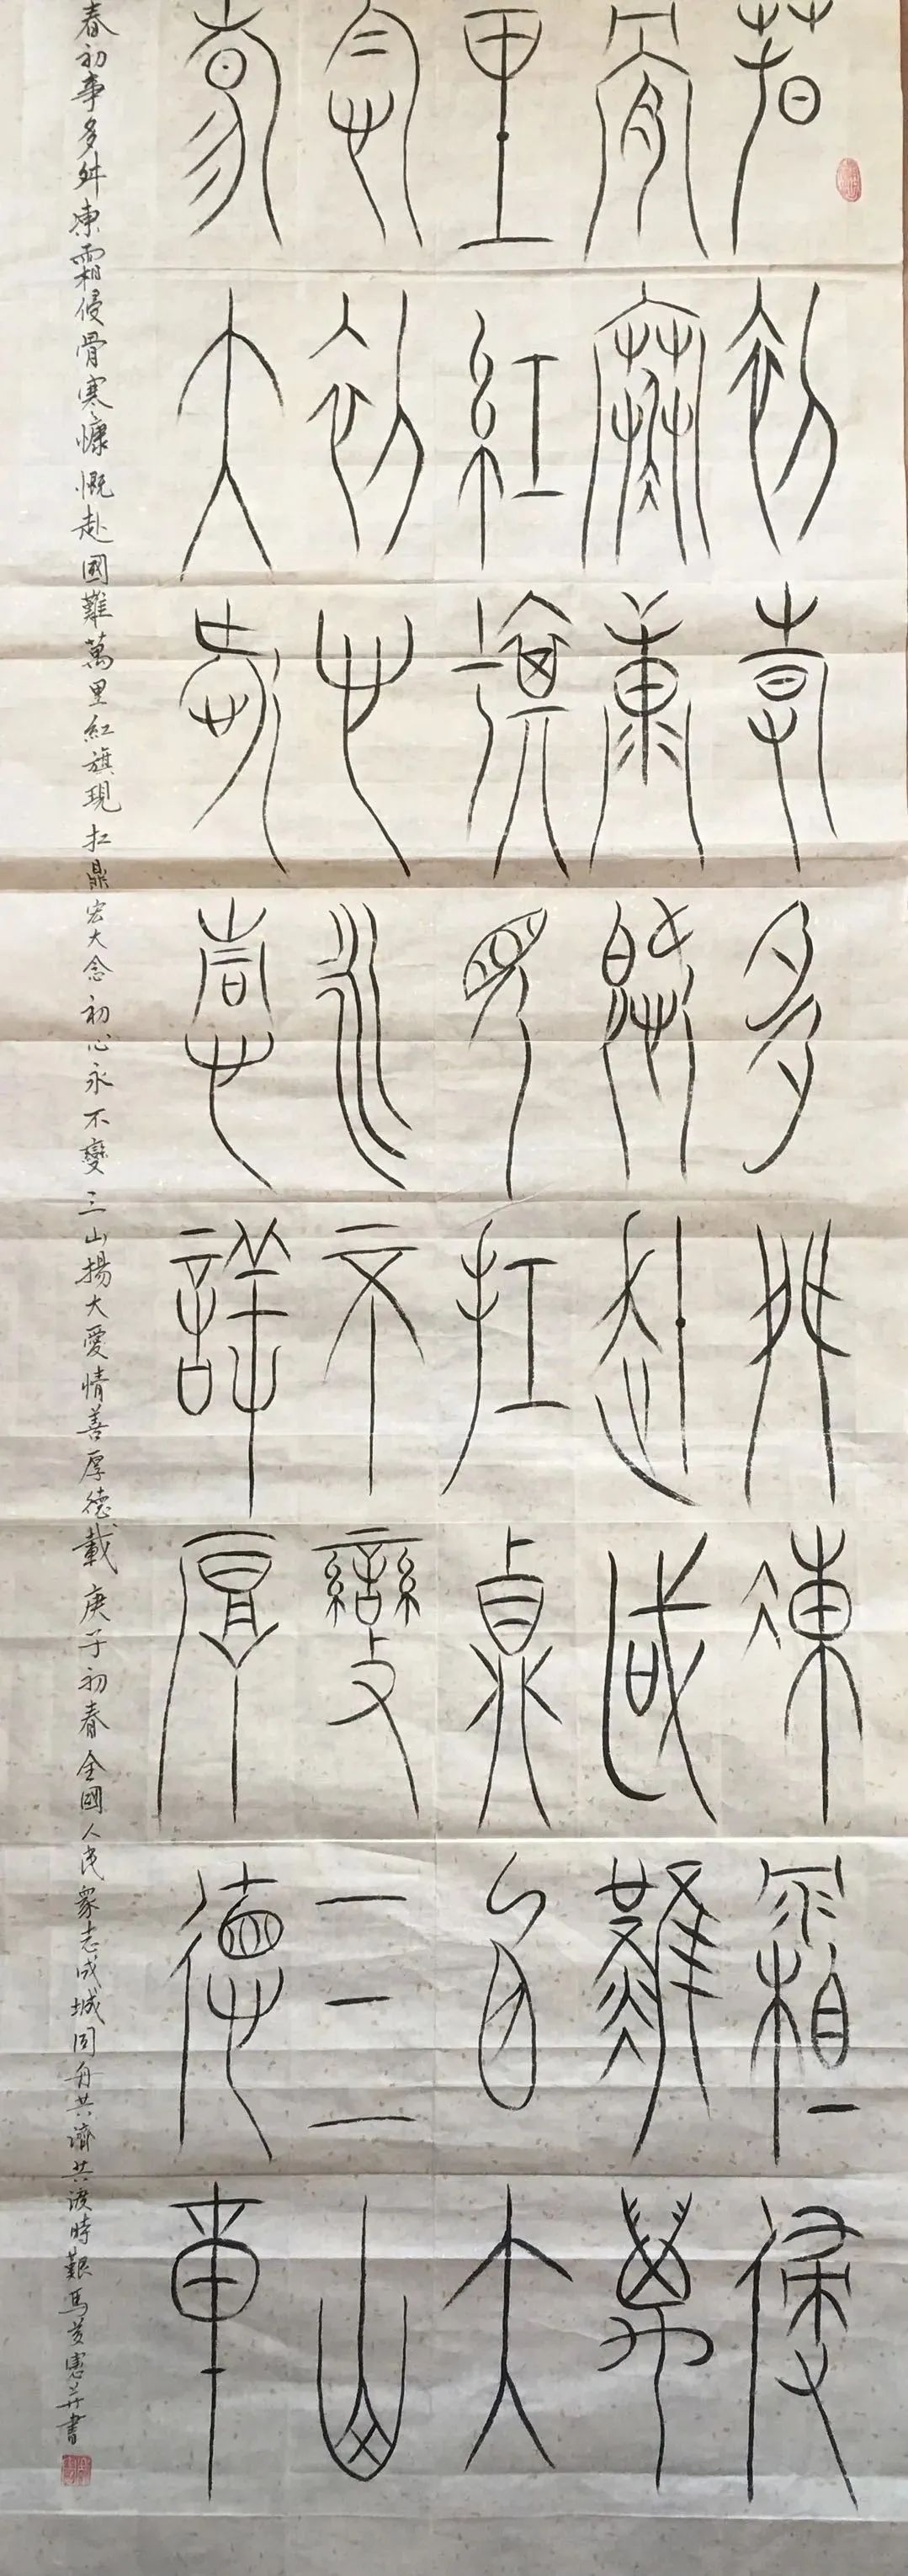 春初事多舛凍霜侵
骨寒慷慨赴國難萬
里紅旗現扛鼎宏大
念初心永不變三山
揚大愛情善厚德載
春初事多舛凍霜侵骨寒慷慨赴國難萬里紅旗現扛鼎宏大念初心永不變三山揚大愛情善厚德載庚子初春全國人民衆志成城同舟共濟共渡時艱馬憲并書